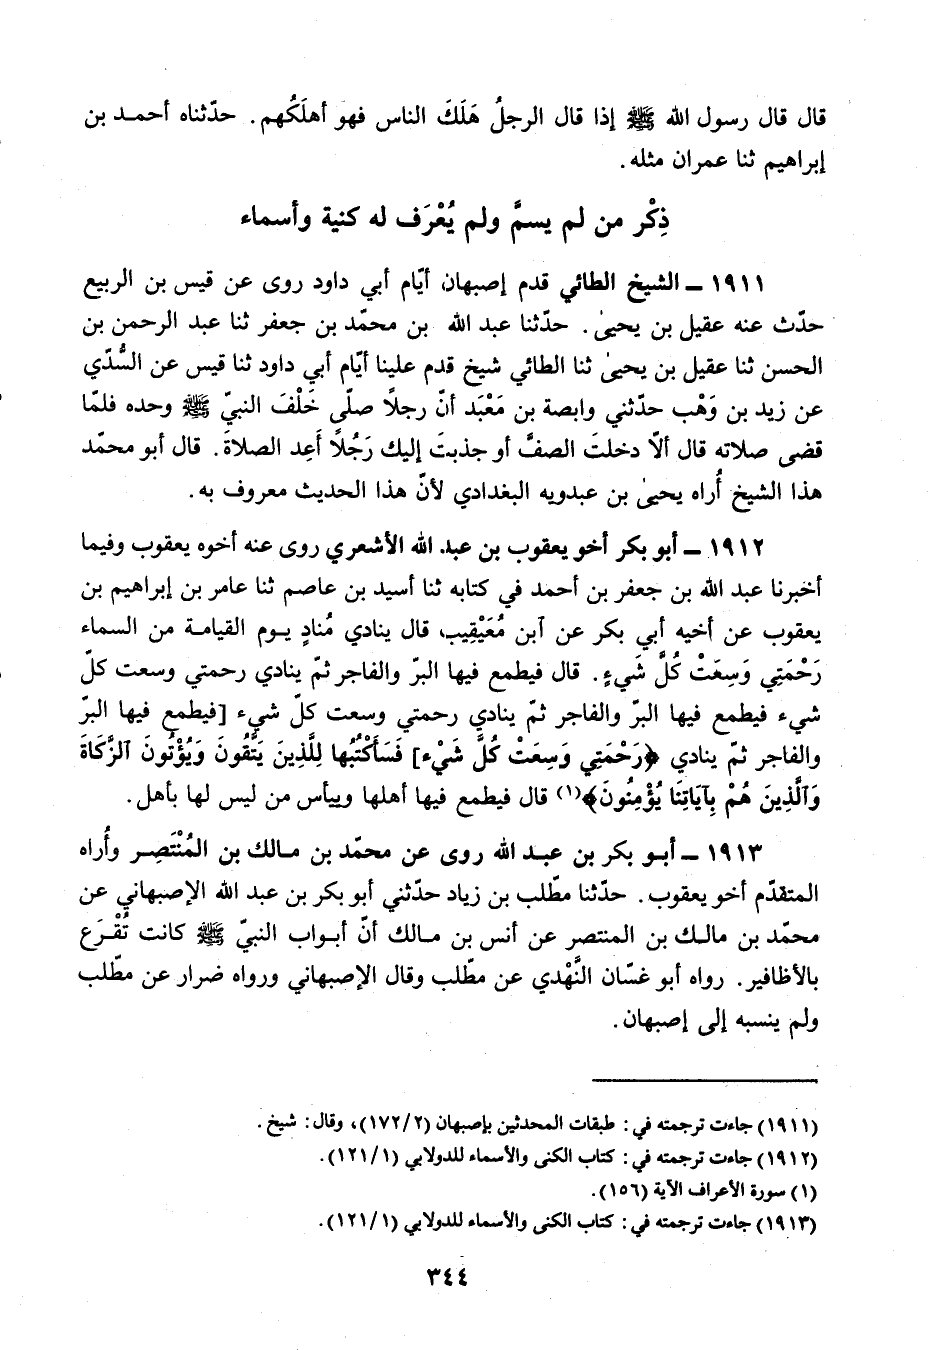 قال قال رسول الله ﷺ إذا قال الرجلُ هَلَكَ الناس فهو أهلَكُهم. حدّثناه أحمد بن
إبراهيم ثنا عمران مثله.
ذِكْر من لم يسمَّ ولم يُعْرَف له كنية وأسماء
١٩١١ ــ الشيخ الطائي قدم إصبهان أيّام أبي داود روى عن قيس بن الربيع
حدّث عنه عقيل بن يحيىٰ. حدّثنا عبد الله بن محمّد بن جعفر ثنا عبد الرحمن بن
الحسن ثنا عقيل بن يحيىٰ ثنا الطائي شيخ قدم علينا أيّام أبي داود ثنا قيس عن السُّدّي
عن زيد بن وَهْب حدّثني وابصة بن مَعْبَد أنّ رجلًا صلّى خَلْفَ النبيّ ﷺ وحده فلمّا
قضى صلاته قال ألّا دخلتَ الصفَّ أو جذبتَ إليك رَجُلًا أَعِد الصلاةَ. قال أبو محمّد
هذا الشيخ أُراه يحيىٰ بن عبدويه البغدادي لأنّ هذا الحديث معروف به.
١٩١٢ ــ أبو بكر أخو يعقوب بن عبد الله الأشعري روى عنه أخوه يعقوب وفيما
أخبرنا عبد الله بن جعفر بن أحمد في كتابه ثنا أسيد بن عاصم ثنا عامر بن إبراهيم بن
يعقوب عن أخيه أبي بكر عن ٱبن مُعَيْقِيب، قال ينادي مُنادٍ يوم القيامة من السماء
رَحْمَتِي وَسِعَتْ كُلَّ شَيءٍ. قال فيطمع فيها البرّ والفاجر ثمّ ينادي رحمتي وسعت كلّ
شيء فيطمع فيها البرّ والفاجر ثمّ ينادي رحمتي وسعت كلّ شيء [فيطمع فيها البرّ
والفاجر ثمّ ينادي ﴿رَحْمَتِي وَسِعَتْ كُلَّ شَيْء] فَسَأَكْتُبُها لِلَّذِينَ يَتَّقُونَ وَيُؤْتُونَ ٱلزَّكَاةَ
وَٱلَّذِينَ هُمْ بِآيَاتِنَا يُؤْمِنُونَ﴾(١) قال فيطمع فيها أهلها وييأس من ليس لها بأهل.
١٩١٣ ــ أبو بكر بن عبد الله روى عن محمّد بن مالك بن المُنْتَصِر وأُراه
المتقدّم أخو يعقوب. حدّثنا مطّلب بن زياد حدّثني أبو بكر بن عبد الله الإصبهاني عن
محمّد بن مالك بن المنتصر عن أنس بن مالك أنّ أبواب النبيّ ﷺ كانت تُقْرَع
بالأظافير. رواه أبو غسّان النَّهْدي عن مطّلب وقال الإصبهاني ورواه ضرار عن مطّلب
ولم ينسبه إلى إصبهان.
(١٩١١) جاءت ترجمته في: طبقات المحدثين بإصبهان (١٧٢/٢)، وقال: شيخ.
(١٩١٢) جاءت ترجمته في: كتاب الكنى والأسماء للدولابي (١٢١/١).
(١) سورة الأعراف الآية (١٥٦).
(١٩١٣) جاءت ترجمته في: كتاب الكنى والأسماء للدولابي (١٢١/١).
٣٤٤